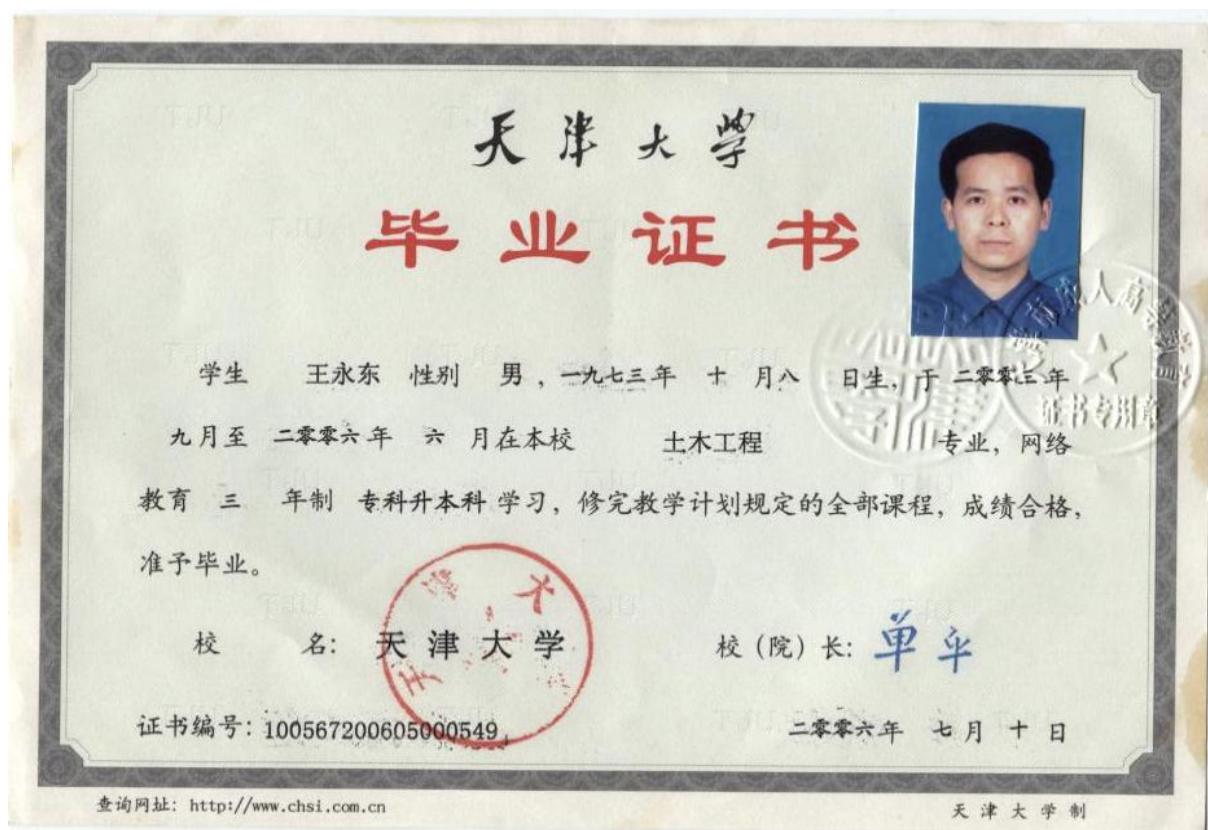 天津大学
毕业证书
学生 王永东 性别 男，一九七三年 十 月八 日生，于 二零零三年
九月至 二零零六年 六 月在本校 土木工程 专业，网络
教育 三 年制 专科升本科 学习，修完教学计划规定的全部课程，成绩合格，
准予毕业。
校 名：天津大学 校（院）长：单平
证书编号：100567200605000549
二零零六年 七月十日
查询网址：http://www.chsi.com.cn
天津大学制
证书专用章